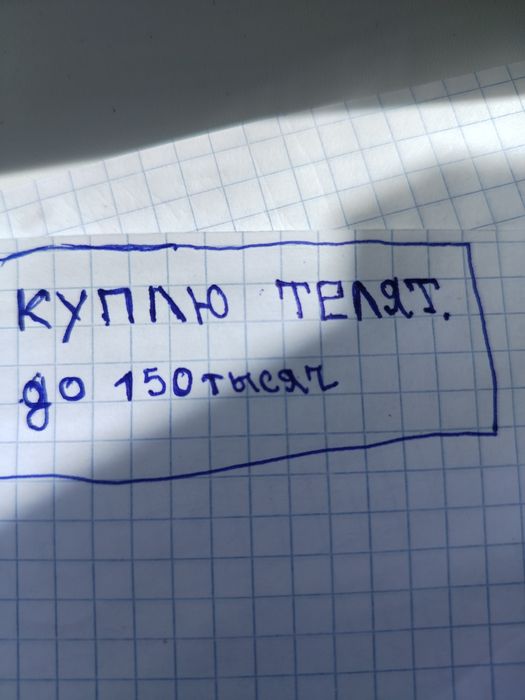 КУПЛЮ ТЕЛЯТ.
до 150 тысяч